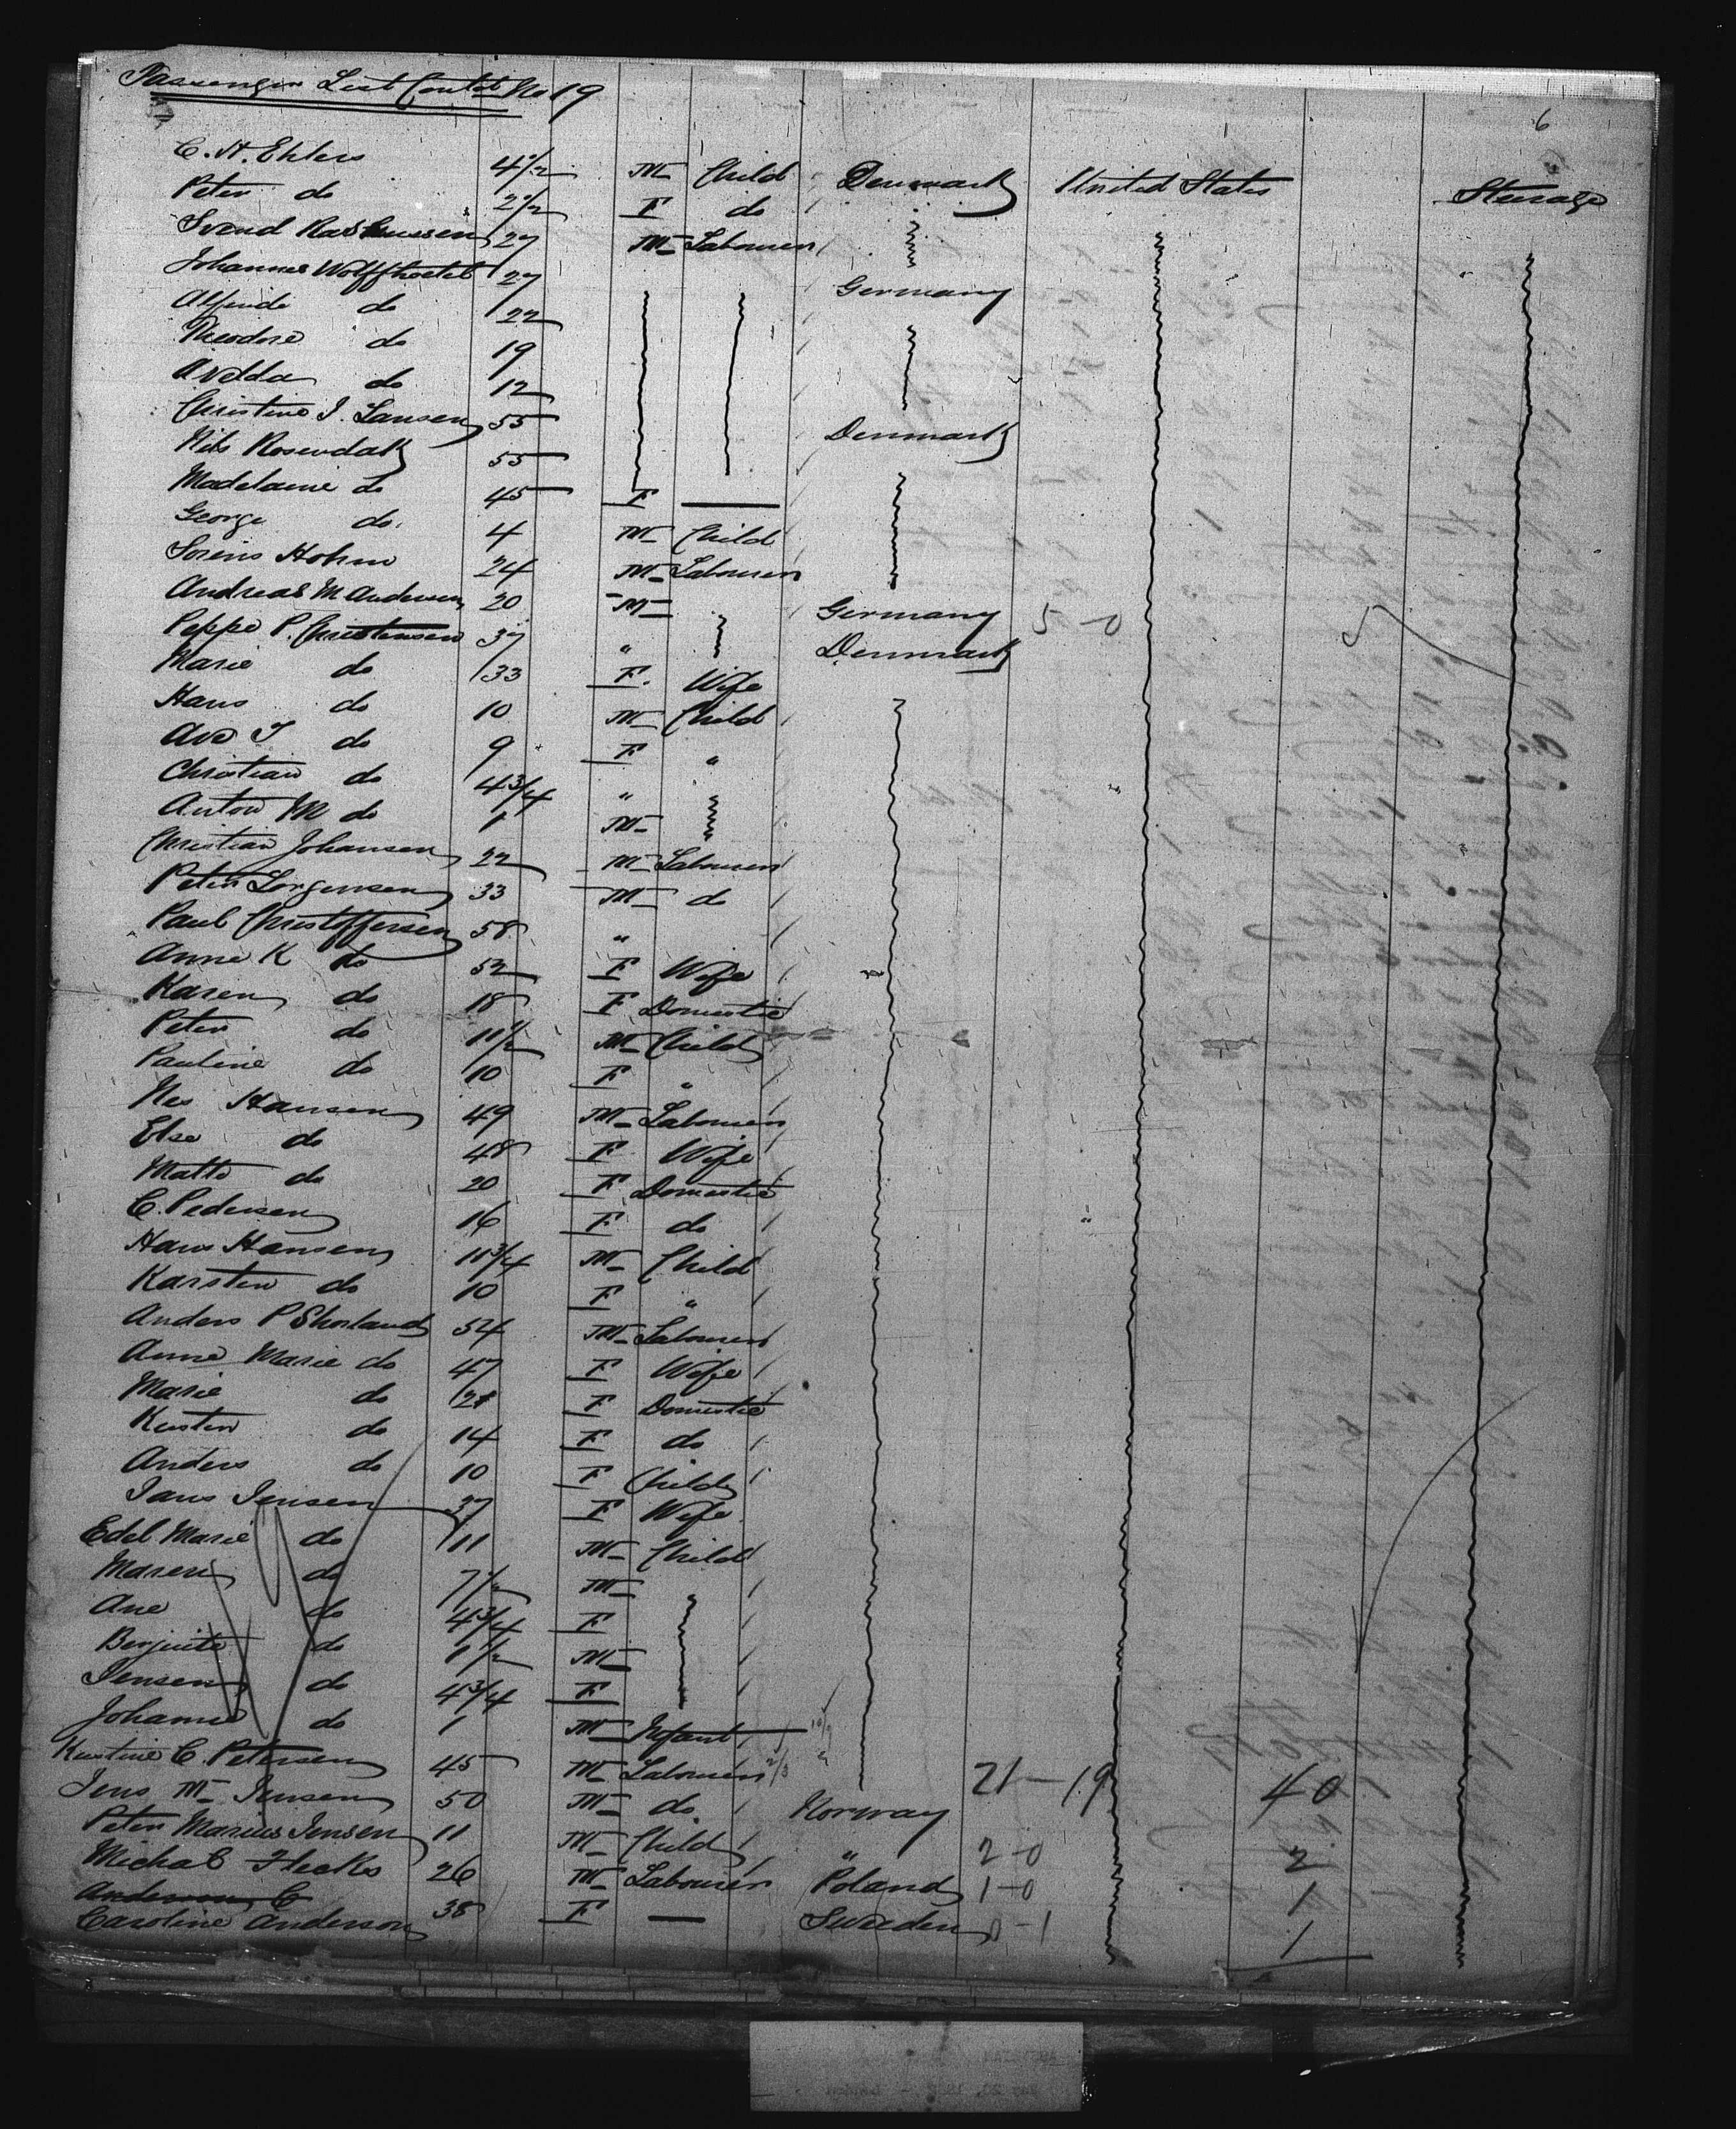 Passenger List Contd No 19
6
C. H. Ehlers 4 1/2 M Child Denmark United States Steerage
Peter do 2 1/2 F do
Svend Rasmussen 27 M Labourer
Johannes Wolffhoetel 27 Germany
Alfride do 22
Theodore do 19
Avelda do 12
Christine J. Lansen 55 Denmark
Nils Rosendalh 55
Madelaine do 45 F —
George do 4 M Child
Sorens Hohm 24 M Labourer
Andreas M Andersen 20 M Germany 5-0 5
Peppe P. Christensen 37 " Denmark
Marie do 33 F. Wife
Hans do 10 M Child
Ave J do 9 F "
Christian do 4 3/4 "
Anton M do 1 M
Christian Johansen 22 M Labourer
Peter Jorgensen 33 M do
Paul Christoffersen 58 "
Anne K do 52 F Wife
Karen do 18 F Domestic
Peter do 11 1/2 M Child
Pauline do 10 F "
Nes Hansen 49 M Labourer
Else do 48 F Wife
Matte do 20 F Domestic
C. Pedersen 16 F do
Hans Hansen 11 3/4 M Child
Karsten do 10 F "
Anders P Shorland 54 M Labourer
Anne Marie do 47 F Wife
Marie do 21 F Domestic
Kirsten do 14 F do
Anders do 10 F Child
Jans Jensen 37 F Wife
Edel Marie do 11 M Child
Maren do 7 1/2 M
Ane do 4 3/4 F
Berjuite do 1 1/2 M
Jensen do 4 3/4 F
Johanne do 1 M Infant
Kirstine C. Petersen 45 M Labourer 21-19 40
Jens M Jensen 50 M do Norway
Peter Marius Jensen 11 M Child " 2-0 2
Michal Fleckes 26 M Labourer Poland 1-0 1
Anderson C
Caroline Anderson 38 F — Sweden 0-1 1